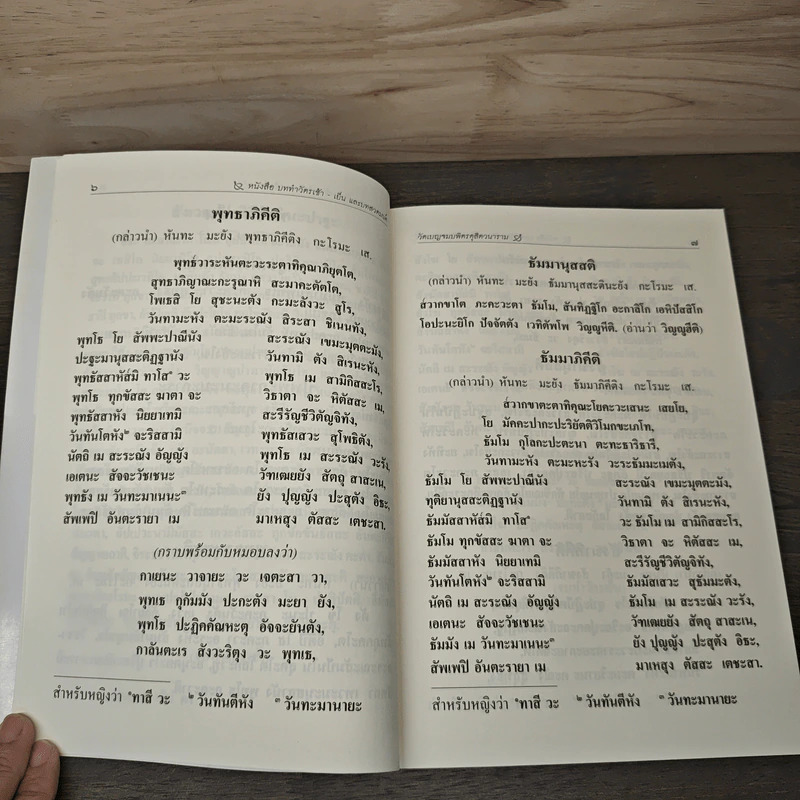 ๖
๒ หนังสือ บททำวัตรเช้า - เย็น และบทสวดมนต์
พุทธาภิคีติ
(กล่าวนำ) หันทะ มะยัง พุทธาภิคีติง กะโรมะ เส.
พุทธ์วาระหันตะวะระตาทิคุณาภิยุตโต,
สุทธาภิญาณะกะรุณาหิ สะมาคะตัตโต,
โพเธสิ โย สุชะนะตัง กะมะลังวะ สูโร,
วันทามะหัง ตะมะระณัง สิระสา ชิเนนทัง,
พุทโธ โย สัพพะปาณีนัง สะระณัง เขมะมุตตะมัง,
ปะฐะมานุสสะติฏฐานัง วันทามิ ตัง สิเรนะหัง,
พุทธัสสาหัส๎มิ ทาโส๑ วะ พุทโธ เม สามิกิสสะโร,
พุทโธ ทุกขัสสะ ฆาตา จะ วิธาตา จะ หิตัสสะ เม,
พุทธัสสาหัง นิยยาเทมิ สะรีรัญชีวิตัญจิทัง,
วันทันโตหัง๒ จะริสสามิ พุทธัสเสวะ สุโพธิตัง,
นัตถิ เม สะระณัง อัญญัง พุทโธ เม สะระณัง วะรัง,
เอเตนะ สัจจะวัชเชนะ วัฑเฒยยัง สัตถุ สาสะเน,
พุทธัง เม วันทะมาเนนะ๓ ยัง ปุญญัง ปะสุตัง อิธะ,
สัพเพปิ อันตะรายา เม มาเหสุง ตัสสะ เตชะสา.
(กราบพร้อมกับหมอบลงว่า)
กาเยนะ วาจายะ วะ เจตะสา วา,
พุทเธ กุกัมมัง ปะกะตัง มะยา ยัง,
พุทโธ ปะฏิคคัณหะตุ อัจจะยันตัง,
กาลันตะเร สังวะริตุง วะ พุทเธ,
สำหรับหญิงว่า ๑ทาสี วะ ๒วันทันตีหัง ๓วันทะมานายะ
วัดเบญจมบพิตรดุสิตวนาราม
๗
ธัมมานุสสติ
(กล่าวนำ) หันทะ มะยัง ธัมมานุสสะตินะยัง กะโรมะ เส.
ส๎วากขาโต ภะคะวะตา ธัมโม, สันทิฏฐิโก อะกาลิโก เอหิปัสสิโก
โอปะนะยิโก ปัจจัตตัง เวทิตัพโพ วิญญูหีติ. (อ่านว่า วิญญูฮีติ)
ธัมมาภิคีติ
(กล่าวนำ) หันทะ มะยัง ธัมมาภิคีติง กะโรมะ เส.
ส๎วากขาตะตาทิคุณะโยคะวะเสนะ เสยโย,
โย มัคคะปากะปะริยัตติวิโมกขะเภโท,
ธัมโม กุโลกะปะตะนา ตะทะธาริธารี,
วันทามะหัง ตะมะหะรัง วะระธัมมะเมตัง,
ธัมโม โย สัพพะปาณีนัง สะระณัง เขมะมุตตะมัง,
ทุติยานุสสะติฏฐานัง วันทามิ ตัง สิเรนะหัง,
ธัมมัสสาหัส๎มิ ทาโส๑ วะ ธัมโม เม สามิกิสสะโร,
ธัมโม ทุกขัสสะ ฆาตา จะ วิธาตา จะ หิตัสสะ เม,
ธัมมัสสาหัง นิยยาเทมิ สะรีรัญชีวิตัญจิทัง,
วันทันโตหัง๒ จะริสสามิ ธัมมัสเสวะ สุธัมมะตัง,
นัตถิ เม สะระณัง อัญญัง ธัมโม เม สะระณัง วะรัง,
เอเตนะ สัจจะวัชเชนะ วัฑเฒยยัง สัตถุ สาสะเน,
ธัมมัง เม วันทะมาเนนะ๓ ยัง ปุญญัง ปะสุตัง อิธะ,
สัพเพปิ อันตะรายา เม มาเหสุง ตัสสะ เตชะสา.
สำหรับหญิงว่า ๑ทาสี วะ ๒วันทันตีหัง ๓วันทะมานายะ